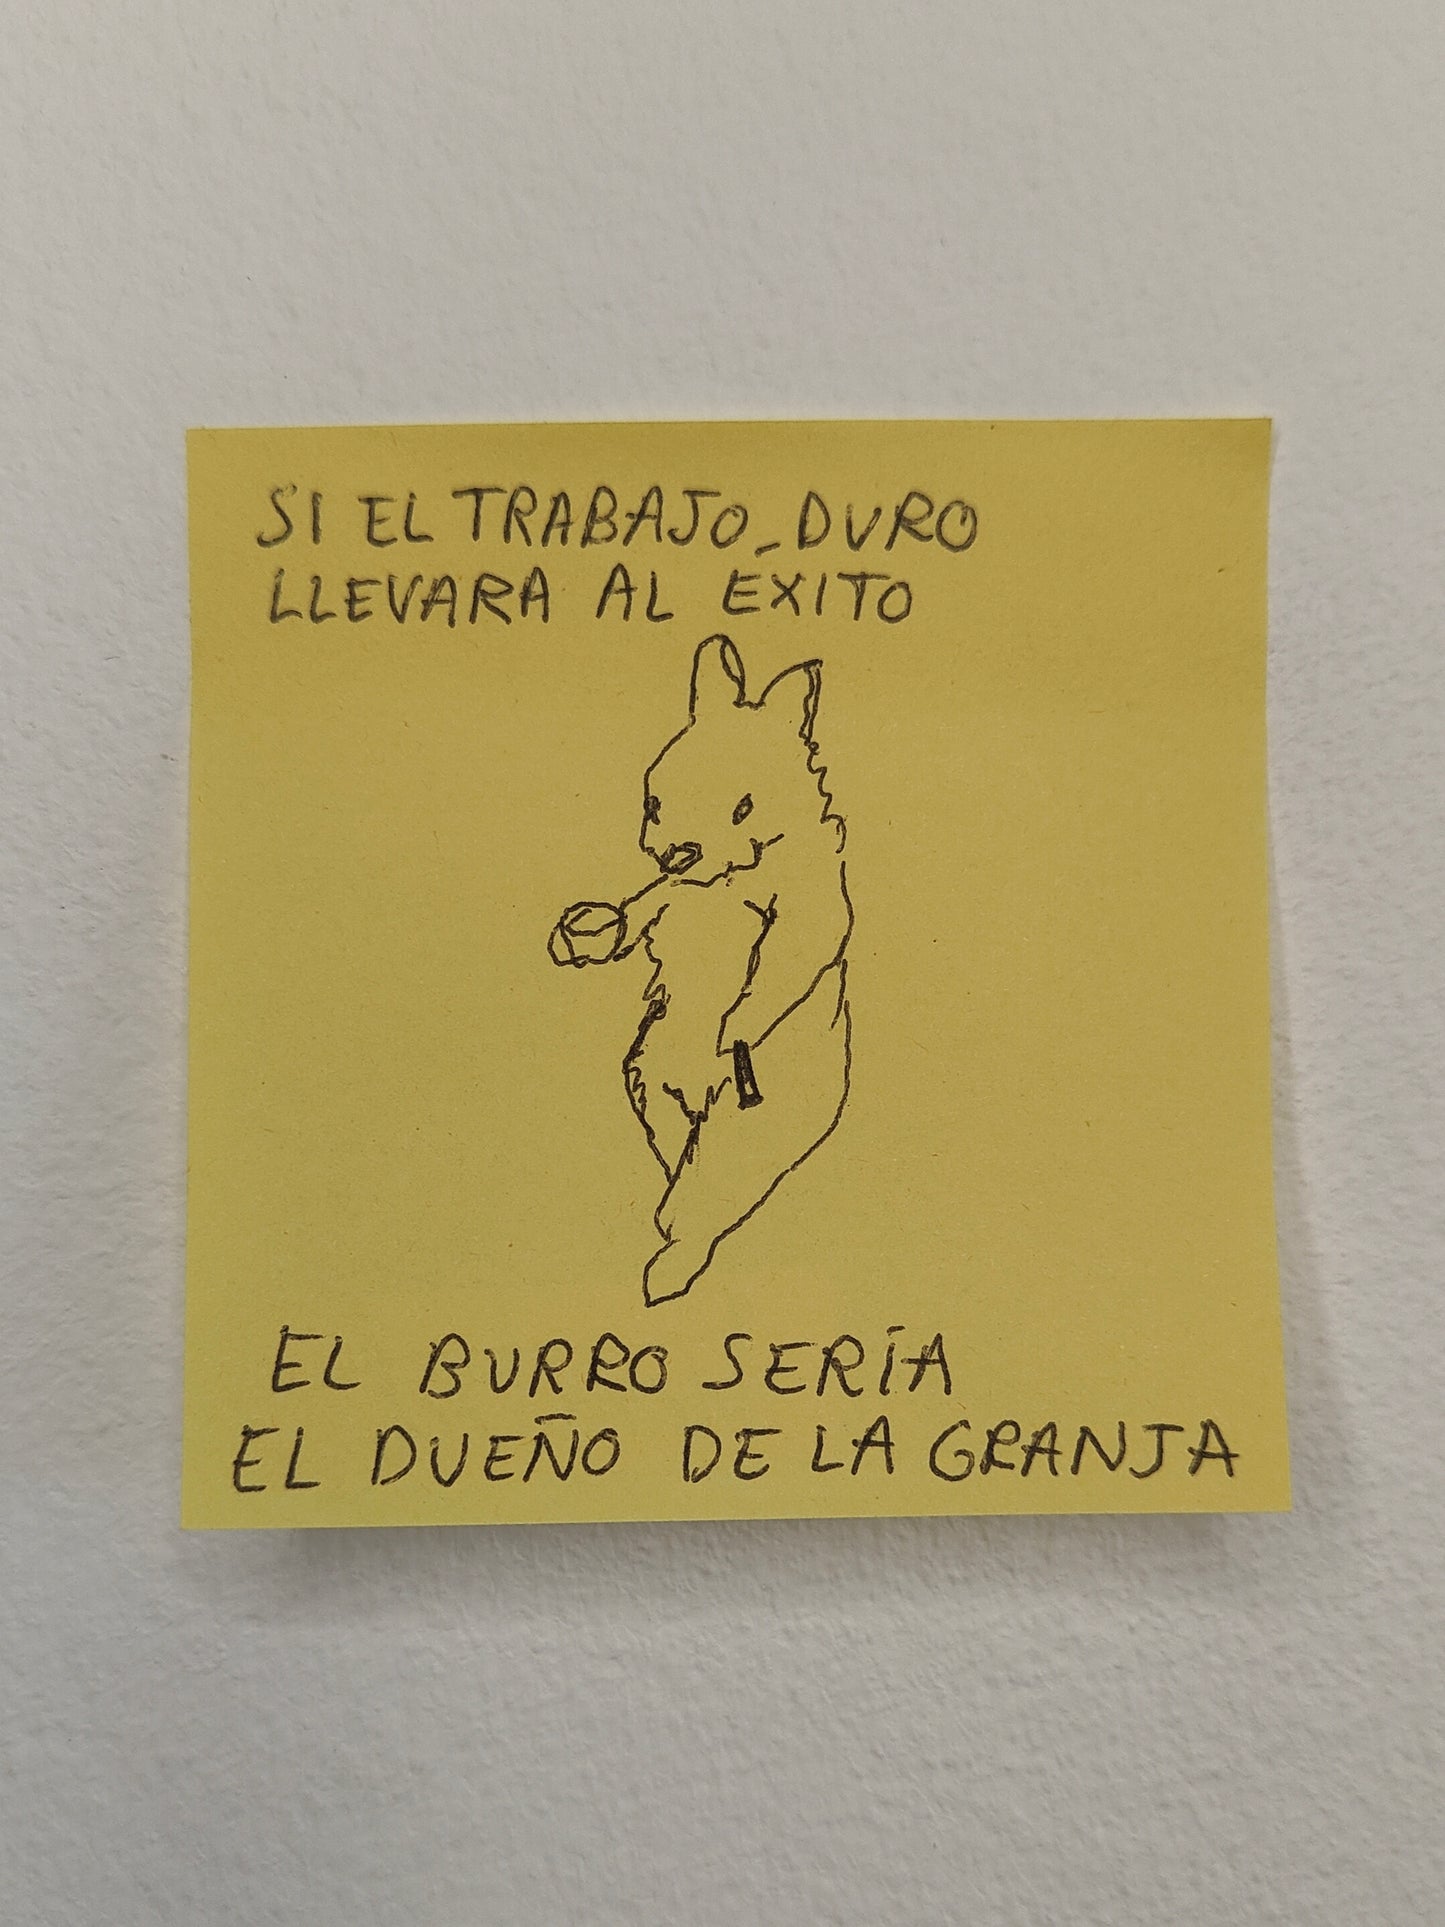 SI EL TRABAJO_DURO
LLEVARA AL EXITO
EL BURRO SERÍA
EL DUEÑO DE LA GRANJA